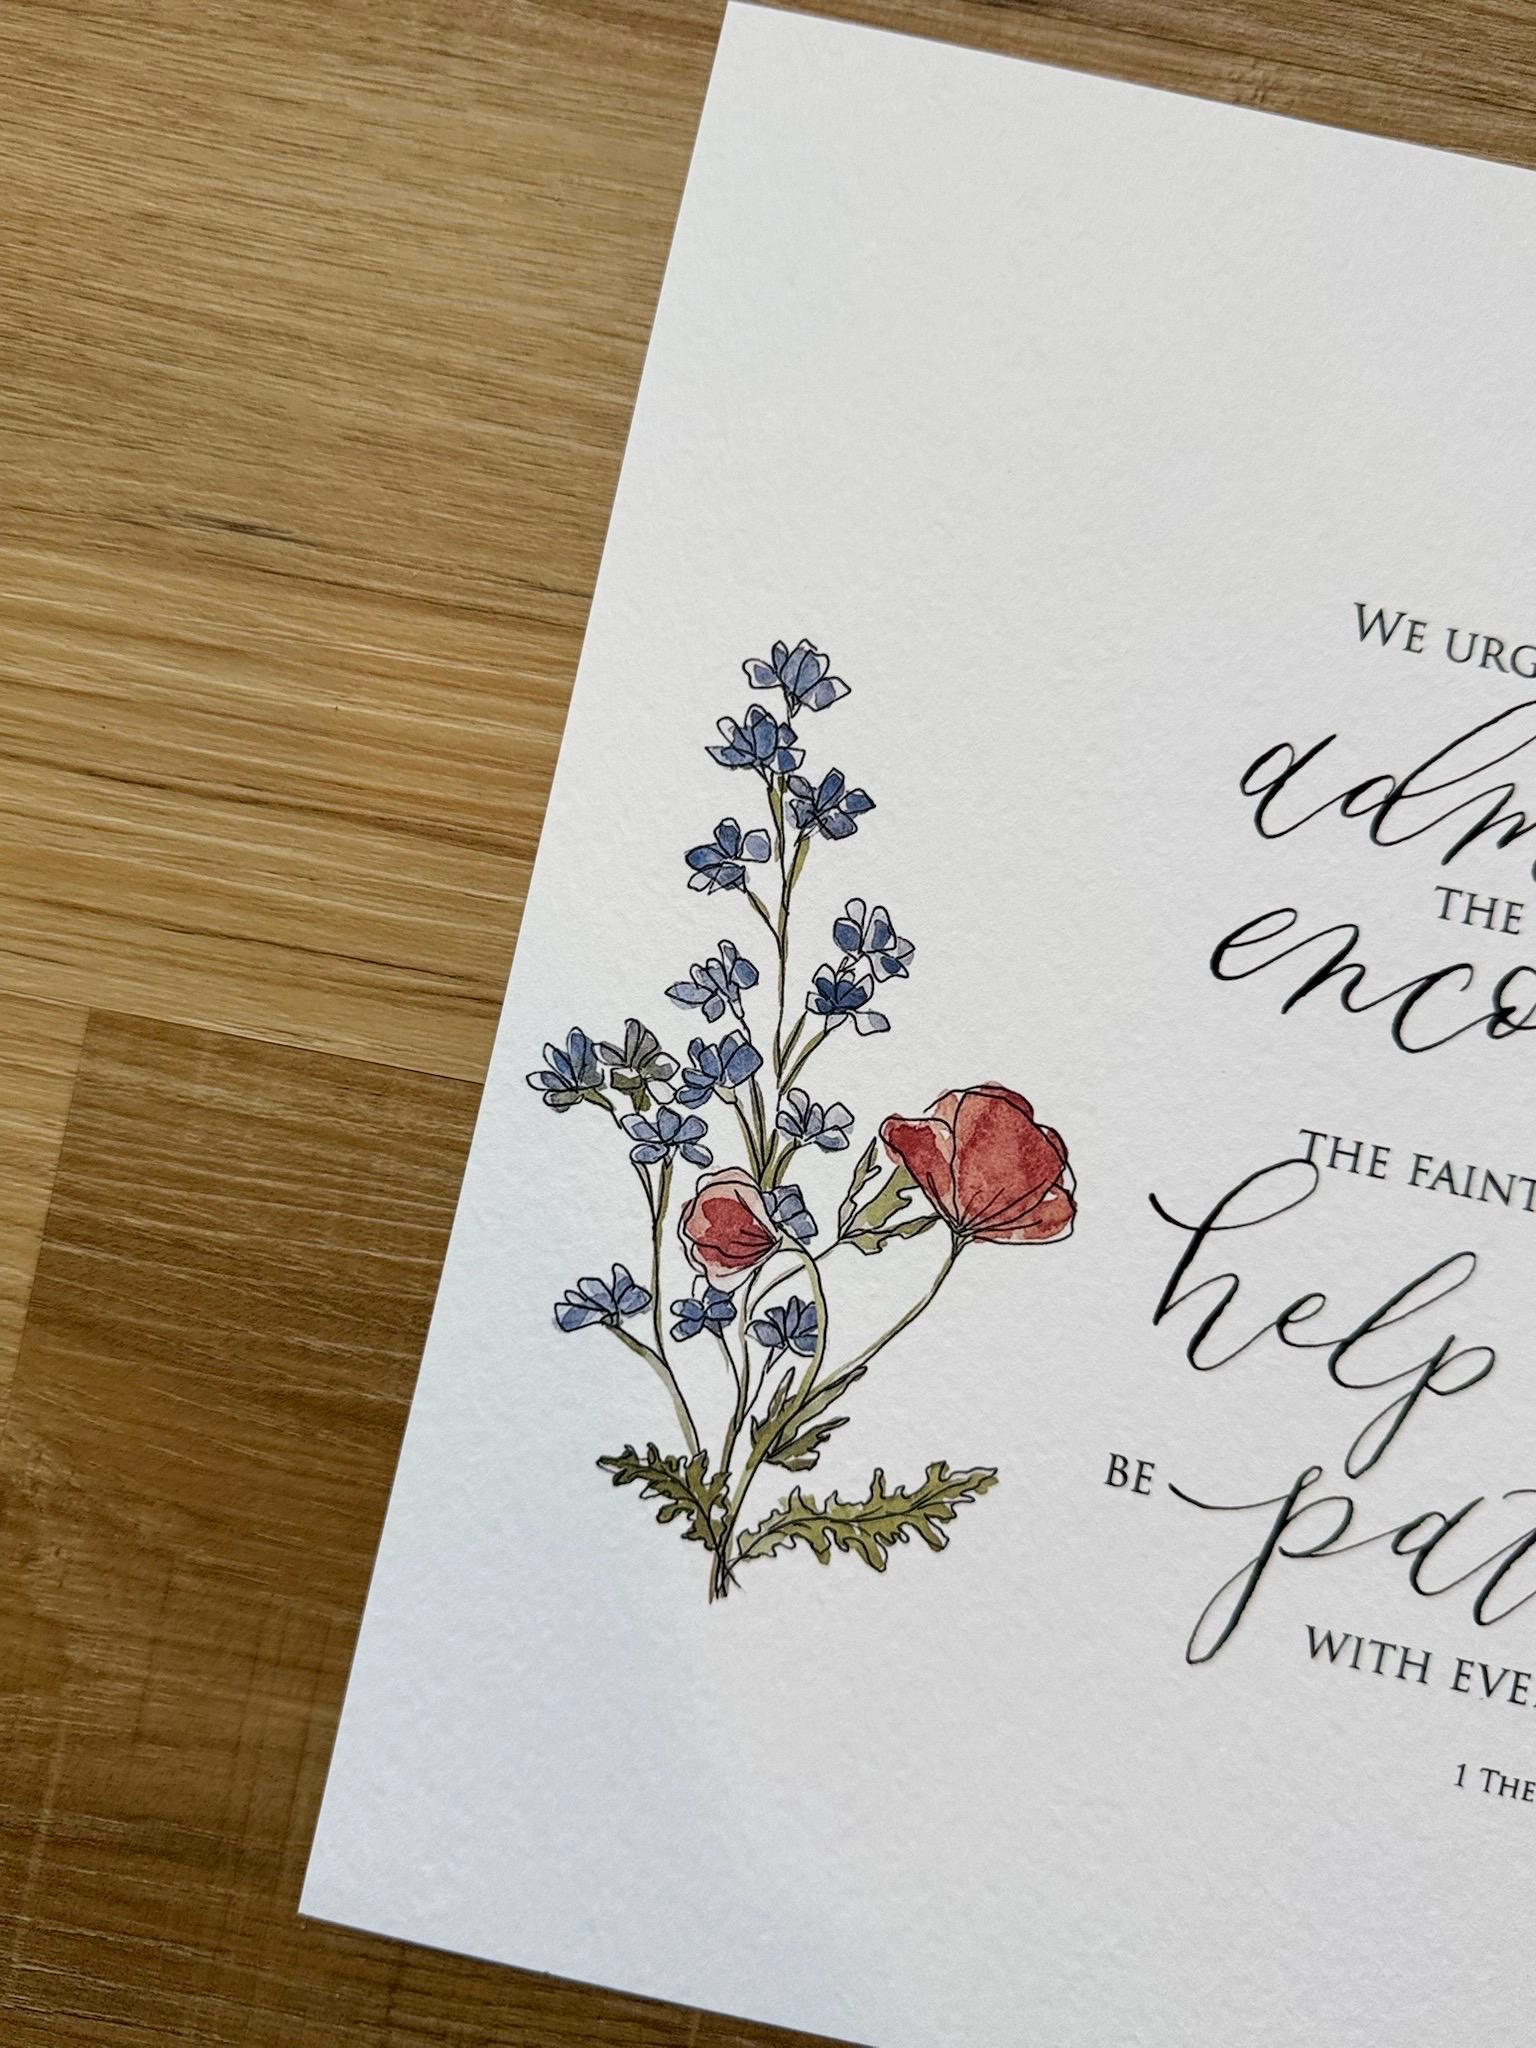 WE URG
adm
THE
enco
THE FAINT
help
BE pat
WITH EVE
1 THE